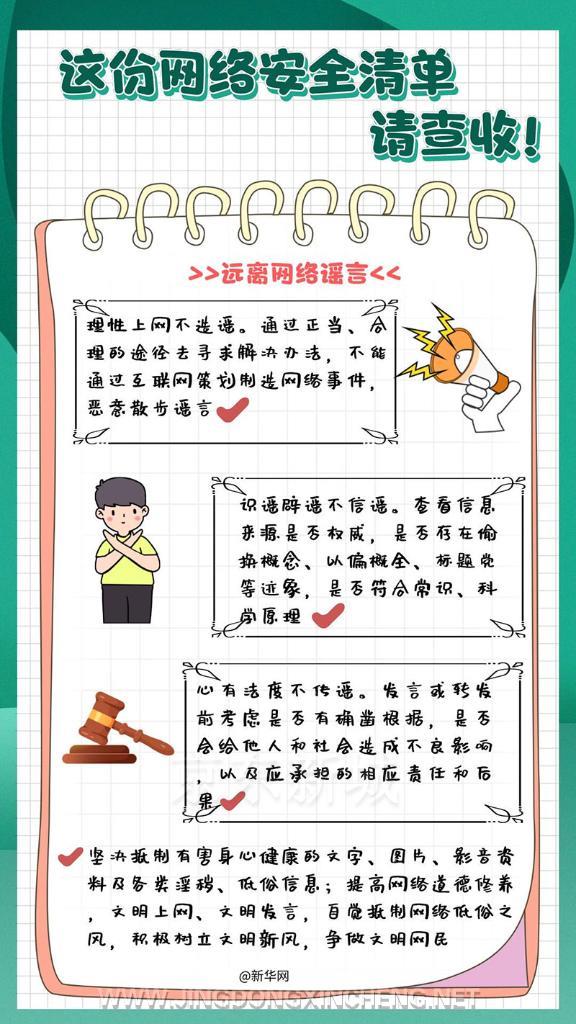 这份网络安全清单
请查收!
>>远离网络谣言<<
理性上网不造谣。通过正当、合
理的途径去寻求解决办法，不能
通过互联网策划制造网络事件，
恶意散步谣言
识谣辟谣不信谣。查看信息
来源是否权威，是否存在偷
换概念、以偏概全、标题党
等迹象，是否符合常识、科
学原理
心有法度不传谣。发言或转发
前考虑是否有确凿根据，是否
会给他人和社会造成不良影响
，以及应承担的相应责任和后
果
京东新城
坚决抵制有害身心健康的文字、图片、影音资
料及各类淫秽、低俗信息；提高网络道德修养
，文明上网、文明发言，自觉抵制网络低俗之
风，积极树立文明新风，争做文明网民
@新华网
WWW.JINGDONGXINCHENG.NET